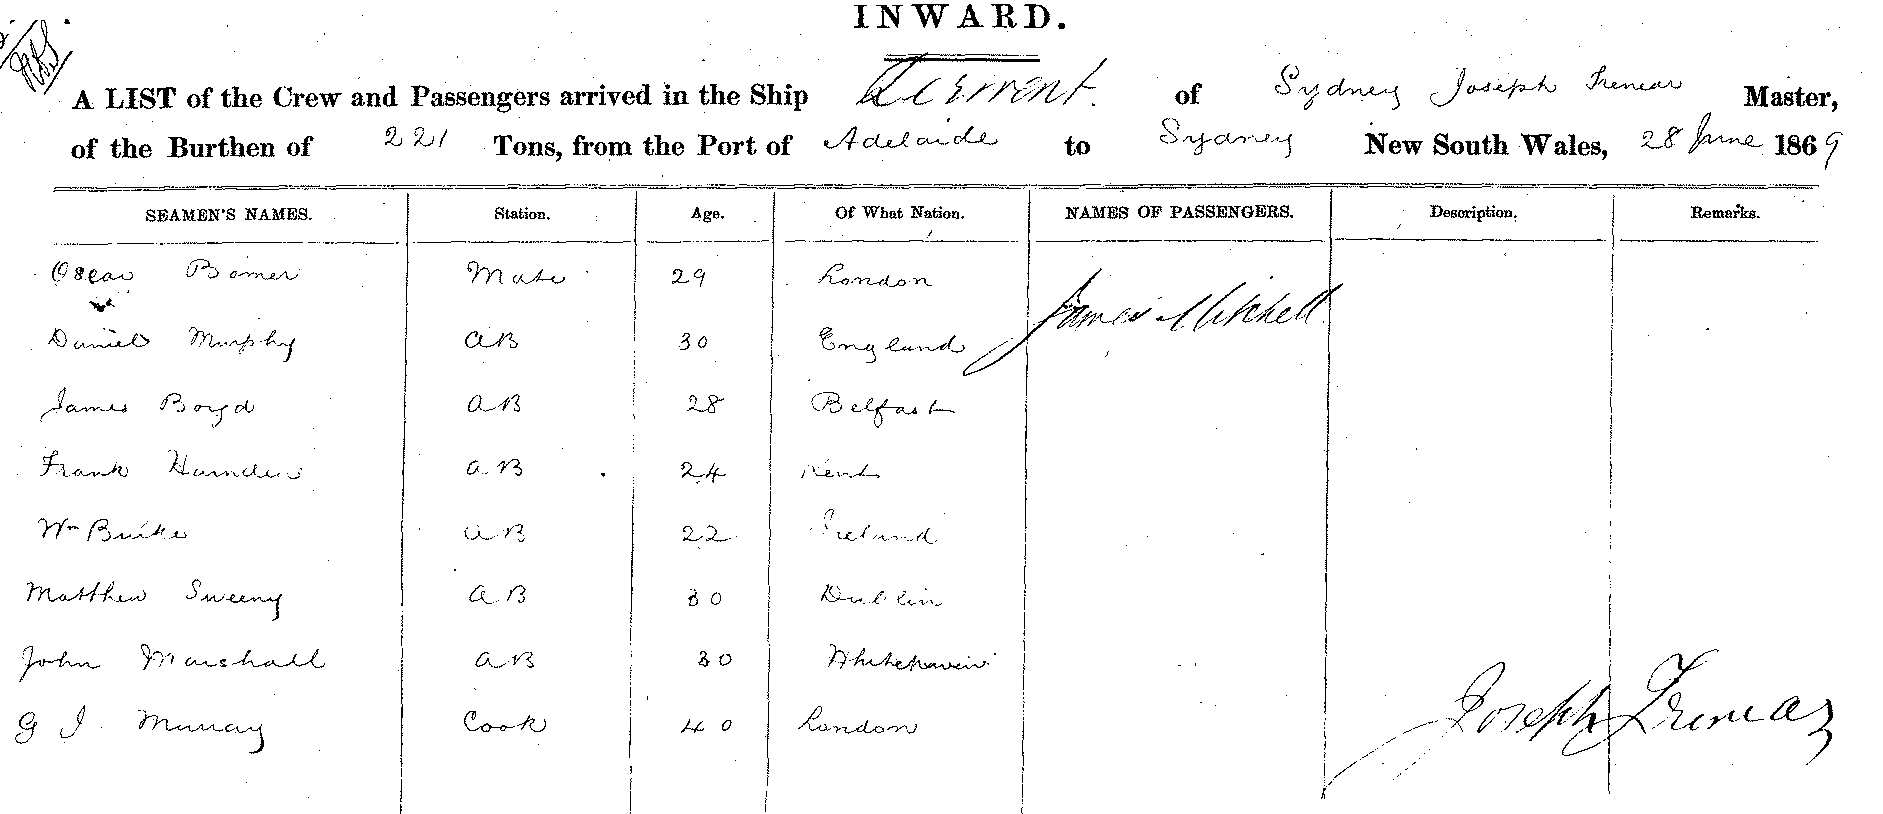 INWARD.
A LIST of the Crew and Passengers arrived in the Ship Derwent. of Sydney Joseph Tremear Master,
of the Burthen of 221 Tons, from the Port of Adelaide to Sydney New South Wales, 28 June 1869
SEAMEN'S NAMES. Station. Age. Of What Nation. NAMES OF PASSENGERS. Description. Remarks.
Oscar Bomer Mate 29 London James Mitchell
Daniel Murphy AB 30 England
James Boyd AB 28 Belfast
Frank Harnden AB 24 Kent
Wm Burke AB 22 Ireland
Matthew Sweeny AB 30 Dublin
John Marshall AB 30 Whitehaven
G J Murray Cook 40 London
Joseph Tremear